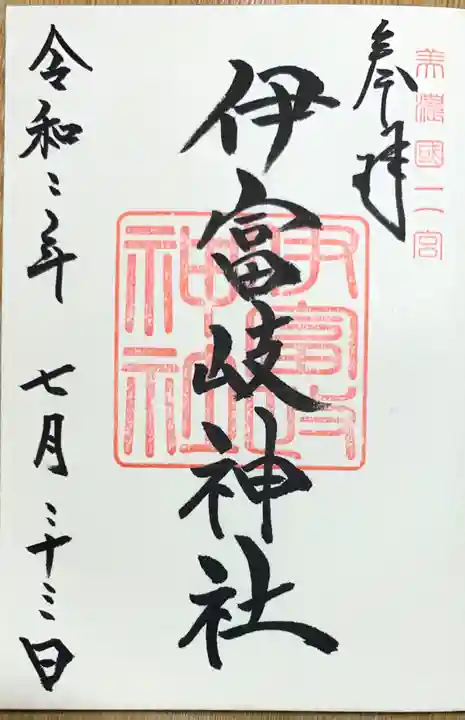 美濃國二宮
奉拝
伊富岐神社
伊富岐
神社
令和二年 七月 二十三日